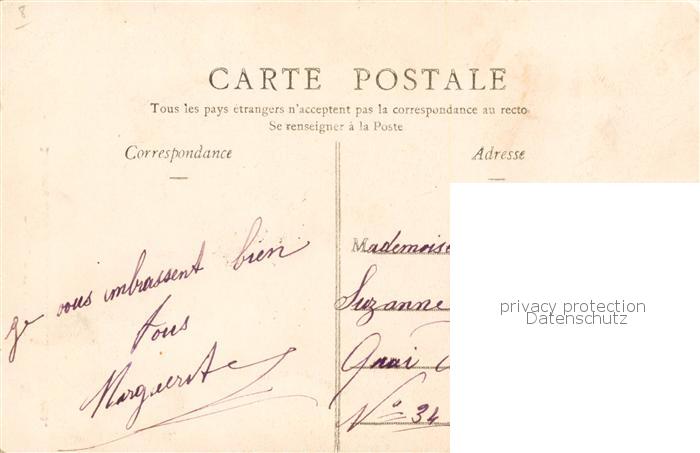 8
CARTE POSTALE
Tous les pays étrangers n'acceptent pas la correspondance au recto
Se renseigner à la Poste
Correspondance
Je vous embrassent bien
tous
Marguerite
Adresse
Mademoise
Suzanne
Quai
N° 34
privacy protection
Datenschutz